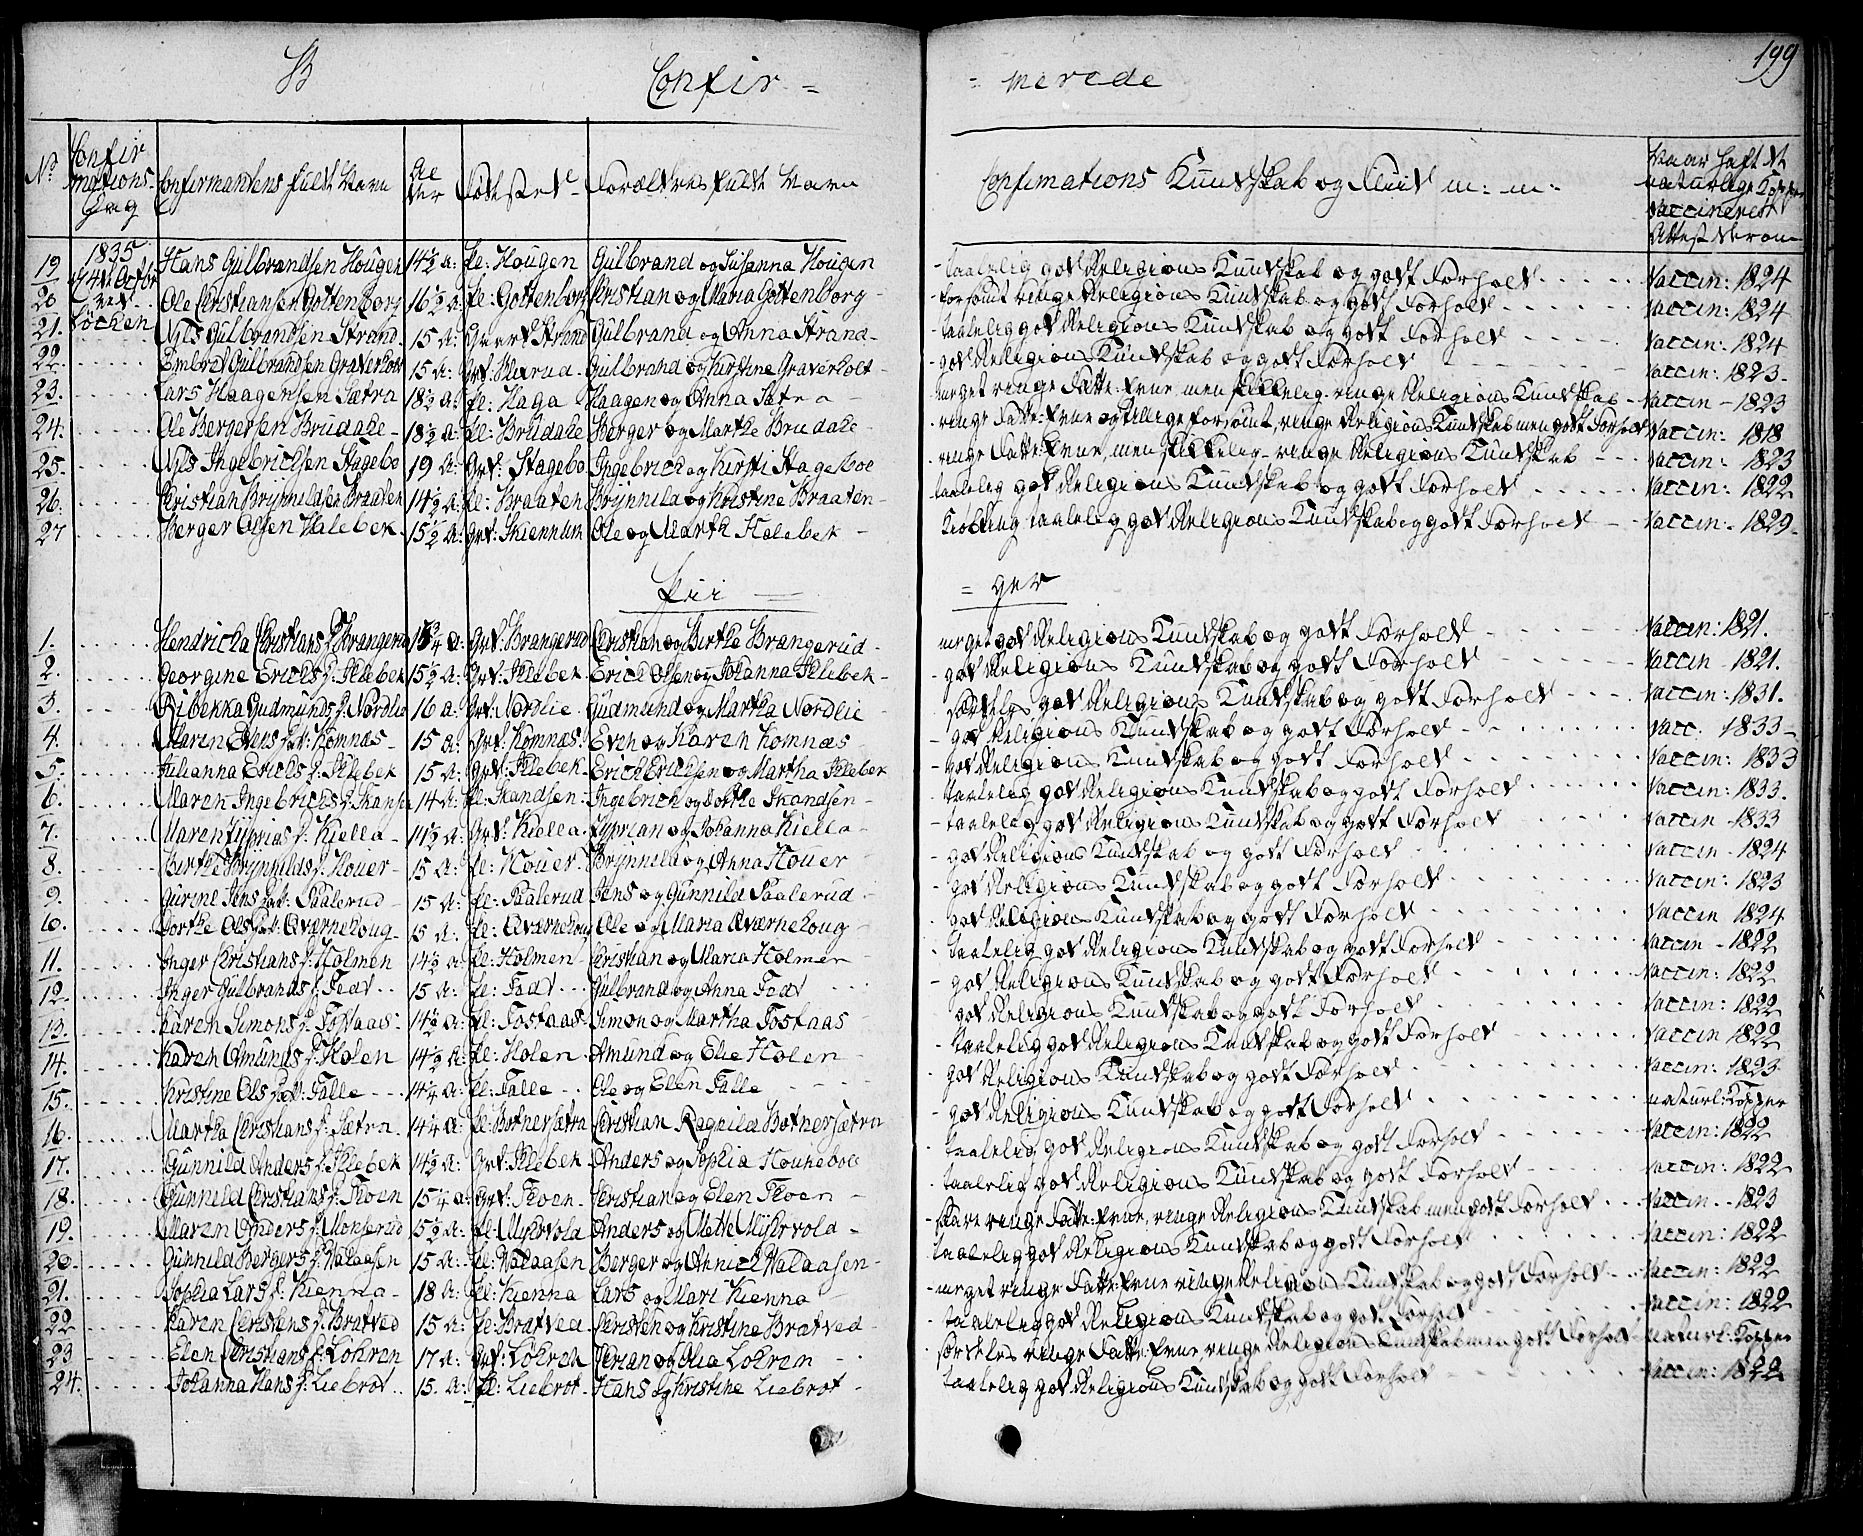 B Confir = = merede 199
No Confirmations Dag Confirmantens fulde Navn Alder Fødested Forældres fulde Navn Confirmations Kundskab og Fliid m: m: Naar haft de naturlige Kopper Vaccineret Attest derom
1835
19 Hans Gulbrandsen Hougen 14½ A: Pl: Hougen Gulbrand og Susanna Hougen taalelig god Religions Kundskab og godt Forhold Vaccin: 1824
20 Ole Christiansen Gottenborg 16½ A: Pl: Gottenborg Christian og Maria Gottenborg forsømt ringe Religions Kundskab og godt Forhold Vaccin: 1824
21. Nils Gulbrandsen Strand 15 A: Strand Gulbrand og Anna Strand taalelig god Religions Kundskab og godt Forhold Vaccin: 1824
22. Embret Gulbrandsen Graverholt 15 A: Grd: Gulbrand og Kirstine Graverholt god Religions Kundskab og godt Forhold Vaccin: 1823
23. Lars Haagensen Sætra 18½ A: Pl: Haga Haagen og Anna Sætra meget ringe Fatte: Evne men skikkelig ringe Religions Kundskab Vaccin 1823
24. Ole Bergersen Brudale 18½ A: Pl: Brudale Berger og Marthe Brudale ringe Fatte: Evne og tillige forsømt, ringe Religions Kundskab men godt Forhold Vaccin: 1818
25. Nils Ingebricktsen Stagebo 19 A: Grd: Stagebo Ingebrick og Kirsti Stageboe ringe Fatte: Evne, men skikkelig ringe Religions Kundskab Vaccin: 1823
26. Christian Brynnildsen Braaten 14½ A: Pl: Braaten Brynnild og Kristine Braaten taalelig god Religions Kundskab og godt Forhold Vaccin: 1822
27 Berger Olsen Halebek 15½ A: Grd: Skiennum Ole og Marth Halebek taalelig god Religions Kundskab og godt Forhold Vaccin: 1829
Pii = ger
1. Hendricka Christians D: Brangerud Grd: Brangerud Christian og Birthe Brangerud meget god Religions Kundskab og godt Forhold Vaccin: 1821.
2. Georgine Ericks D: Klebek 15½ A: Grd: Klebek Erick Olsen og Johanna Klebek god Religions Kundskab og godt Forhold Vaccin 1821.
3. Ribekka Gudmunds D: Nordlie 16 A: Grd: Nordlie Gudmund og Martha Nordlie særdeles god Religions Kundskab og godt Forhold Vaccin: 1831.
4. Maren Evens Dat: Komnæs 15 A: Grd: Komnæs Even og Karen Komnæs god Religions Kundskab og godt Forhold Vacc. 1833
5. Julianna Ericks D: Klebek 15 A: Grd: Klebek Erick Ericksen og Martha Klebek god Religions Kundskab og godt Forhold Vaccin: 1833
6. Maren Ingebricks D: Skansen 14 A: Pl: Skandsen Ingebrick og Dorthe Skandsen taalelig god Religions Kundskab og godt Forhold Vaccin: 1833.
7. Maren Zyprias D: Kiella 14½ A: Grd: Kiella Zyprian og Johanna Kiella taalelig god Religions Kundskab og godt Forhold Vaccin 1833
8. Birthe Brynnilds D: Houer 15 A: Pl: Houer Brynnild og Anna Houer god Religions Kundskab og godt Forhold Vaccin 1824
9. Gurine Jens Dat: Paalerud 15 A: Pl: Paalerud Jens og Gunnild Paalerud god Religions Kundskab og godt Forhold Vaccin: 1823
10. Dorthe Ols Dat: Qværnehoug 15 A: Pl: Qværnehoug Ole og Maria Qværnehoug god Religions Kundskab og godt Forhold Vaccin 1824
11. Inger Christians D: Holmen 14½ A: Pl: Holmen Christian og Maria Holmen taalelig god Religions Kundskab og godt Forhold Vaccin 1822
12 Inger Gulbrands D: Fodt 15 A: Pl: Fodt Gulbrand og Anna Fodt god Religions Kundskab og godt Forhold Vaccin: 1822
13. Karen Simons D: Fossaas 14½ A: Pl: Fostaas Simon og Martha Fostaas god Religions Kundskab og godt Forhold Vaccin: 1822
14. Karen Amunds D: Holen 14½ A: Pl: Holen Amund og Elie Holen taalelig god Religions Kundskab og godt Forhold Vaccin 1822
15. Kristine Ols Dat: Falle 14¼ A: Pl: Falle Ole og Elen Falle god Religions Kundskab og godt Forhold Vaccin: 1823
16. Martha Christians D: Sætra 14¼ A: Pl: Botnersætra Christian Ragnild Botnersætra god Religions Kundskab og godt Forhold naturl: Kopper
17. Gunnild Anders D: Klebek 14½ A: Grd: Klebek Anders og Sophia taalelig god Religions Kundskab og godt Forhold Vaccin: 1822
18. Gunnild Christians D: Floen 15¼ A: Grd: Floen Christian og Elen Floen taalelig god Religions Kundskab og godt Forhold Vaccin: 1822
19. Maren Anders D: Monserud 15½ A: Pl: Mykrvold Anders og Mette Mykrvold ringe Fatte: Evne, ringe Religions Kundskab men godt Forhold Vaccin 1823
20. Gunnild Bergers D: Walaasen 15 A: Pl: Walaasen Berger og Annick Walaasen taalelig god Religions Kundskab og godt Forhold Vaccin: 1822
21. Sophia Lars D: Kienna 18 A: Pl: Kienna Lars og Mari Kienna meget ringe Fatte: Evne ringe Religions Kundskab og godt Forhold Vaccin: 1822
22 Karen Christens D: Bratved 15 A: Pl: Bratved Christen og Kristine Bratved taalelig god Religions Kundskab og godt Forhold Vaccin: 1822
23 Elen Christians D: Lohren 17 A: Grd: Lohren og Olea Lohren særdeles ringe Fatte: Evne, ringe Religions Kundskab men godt Forhold naturl: Kopper
24. Johanna Hans D: Liebrot 15. A: Pl: Liebrot Hans og Kristine Liebrot taalelig god Religions Kundskab og godt Forhold Vaccin: 1822